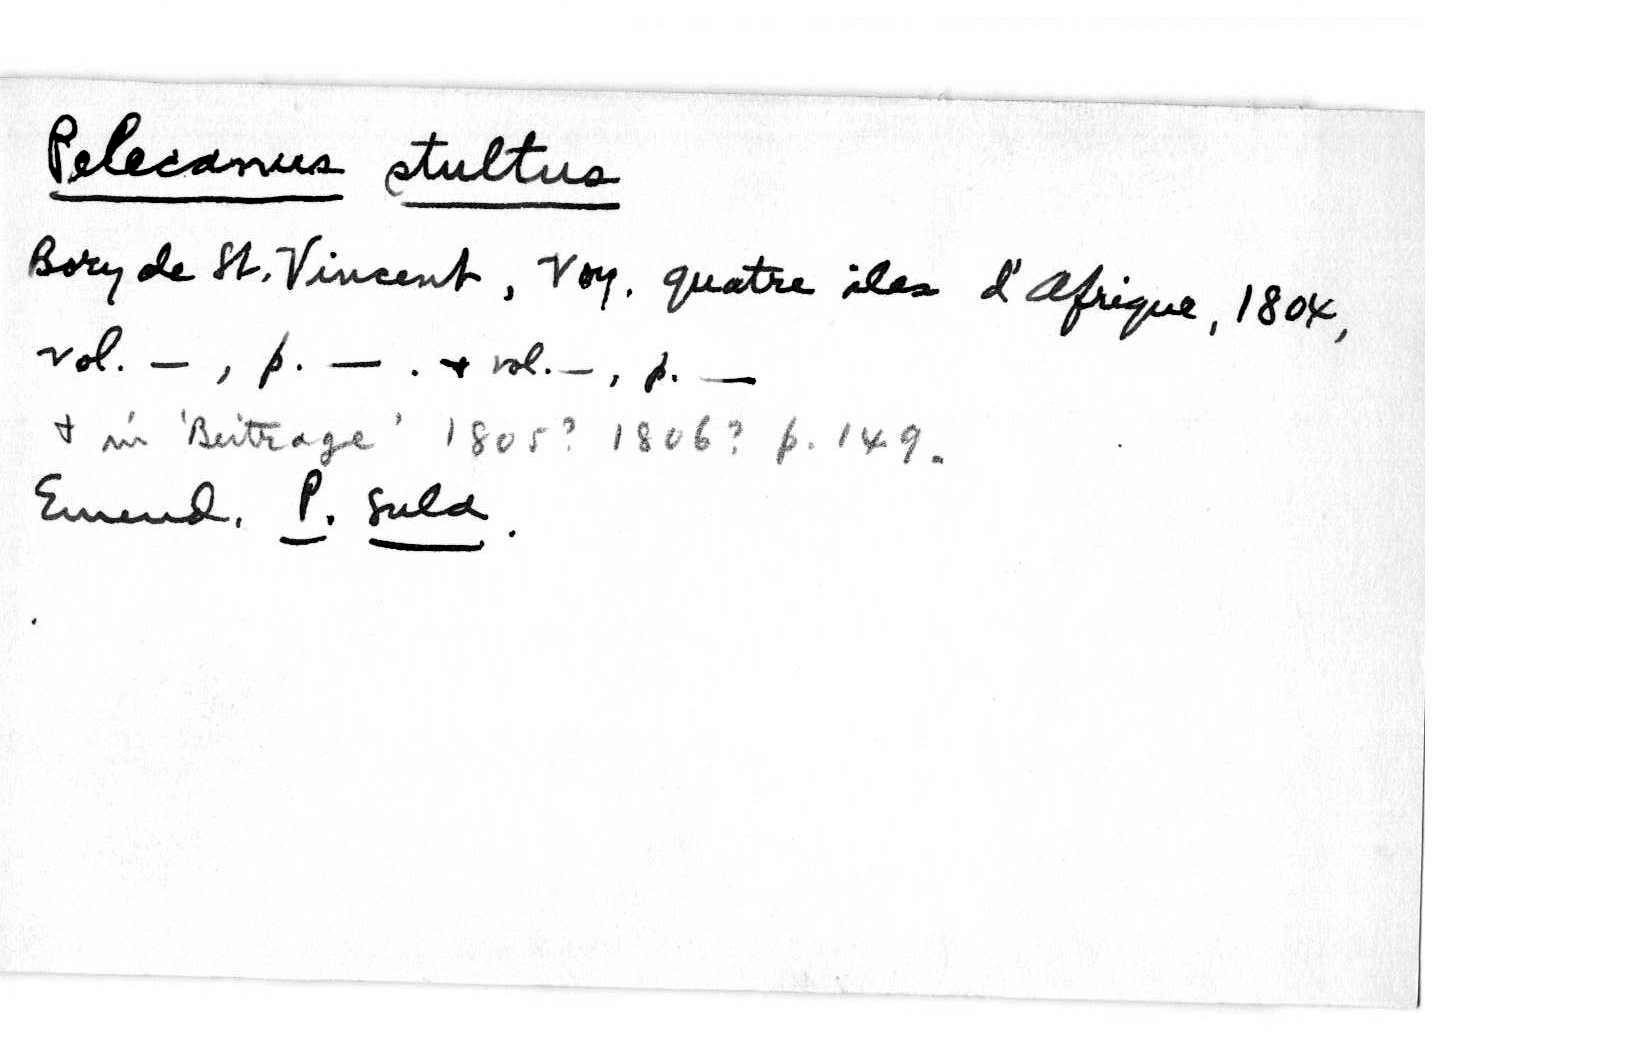 Pelecanus stultus
Bory de St. Vincent, Voy. quatre iles d'Afrique, 1804,
vol. —, p. — . + vol. —, p. —
+ in 'Beitrage' 1805? 1806? p. 149.
Emend. P. sula.